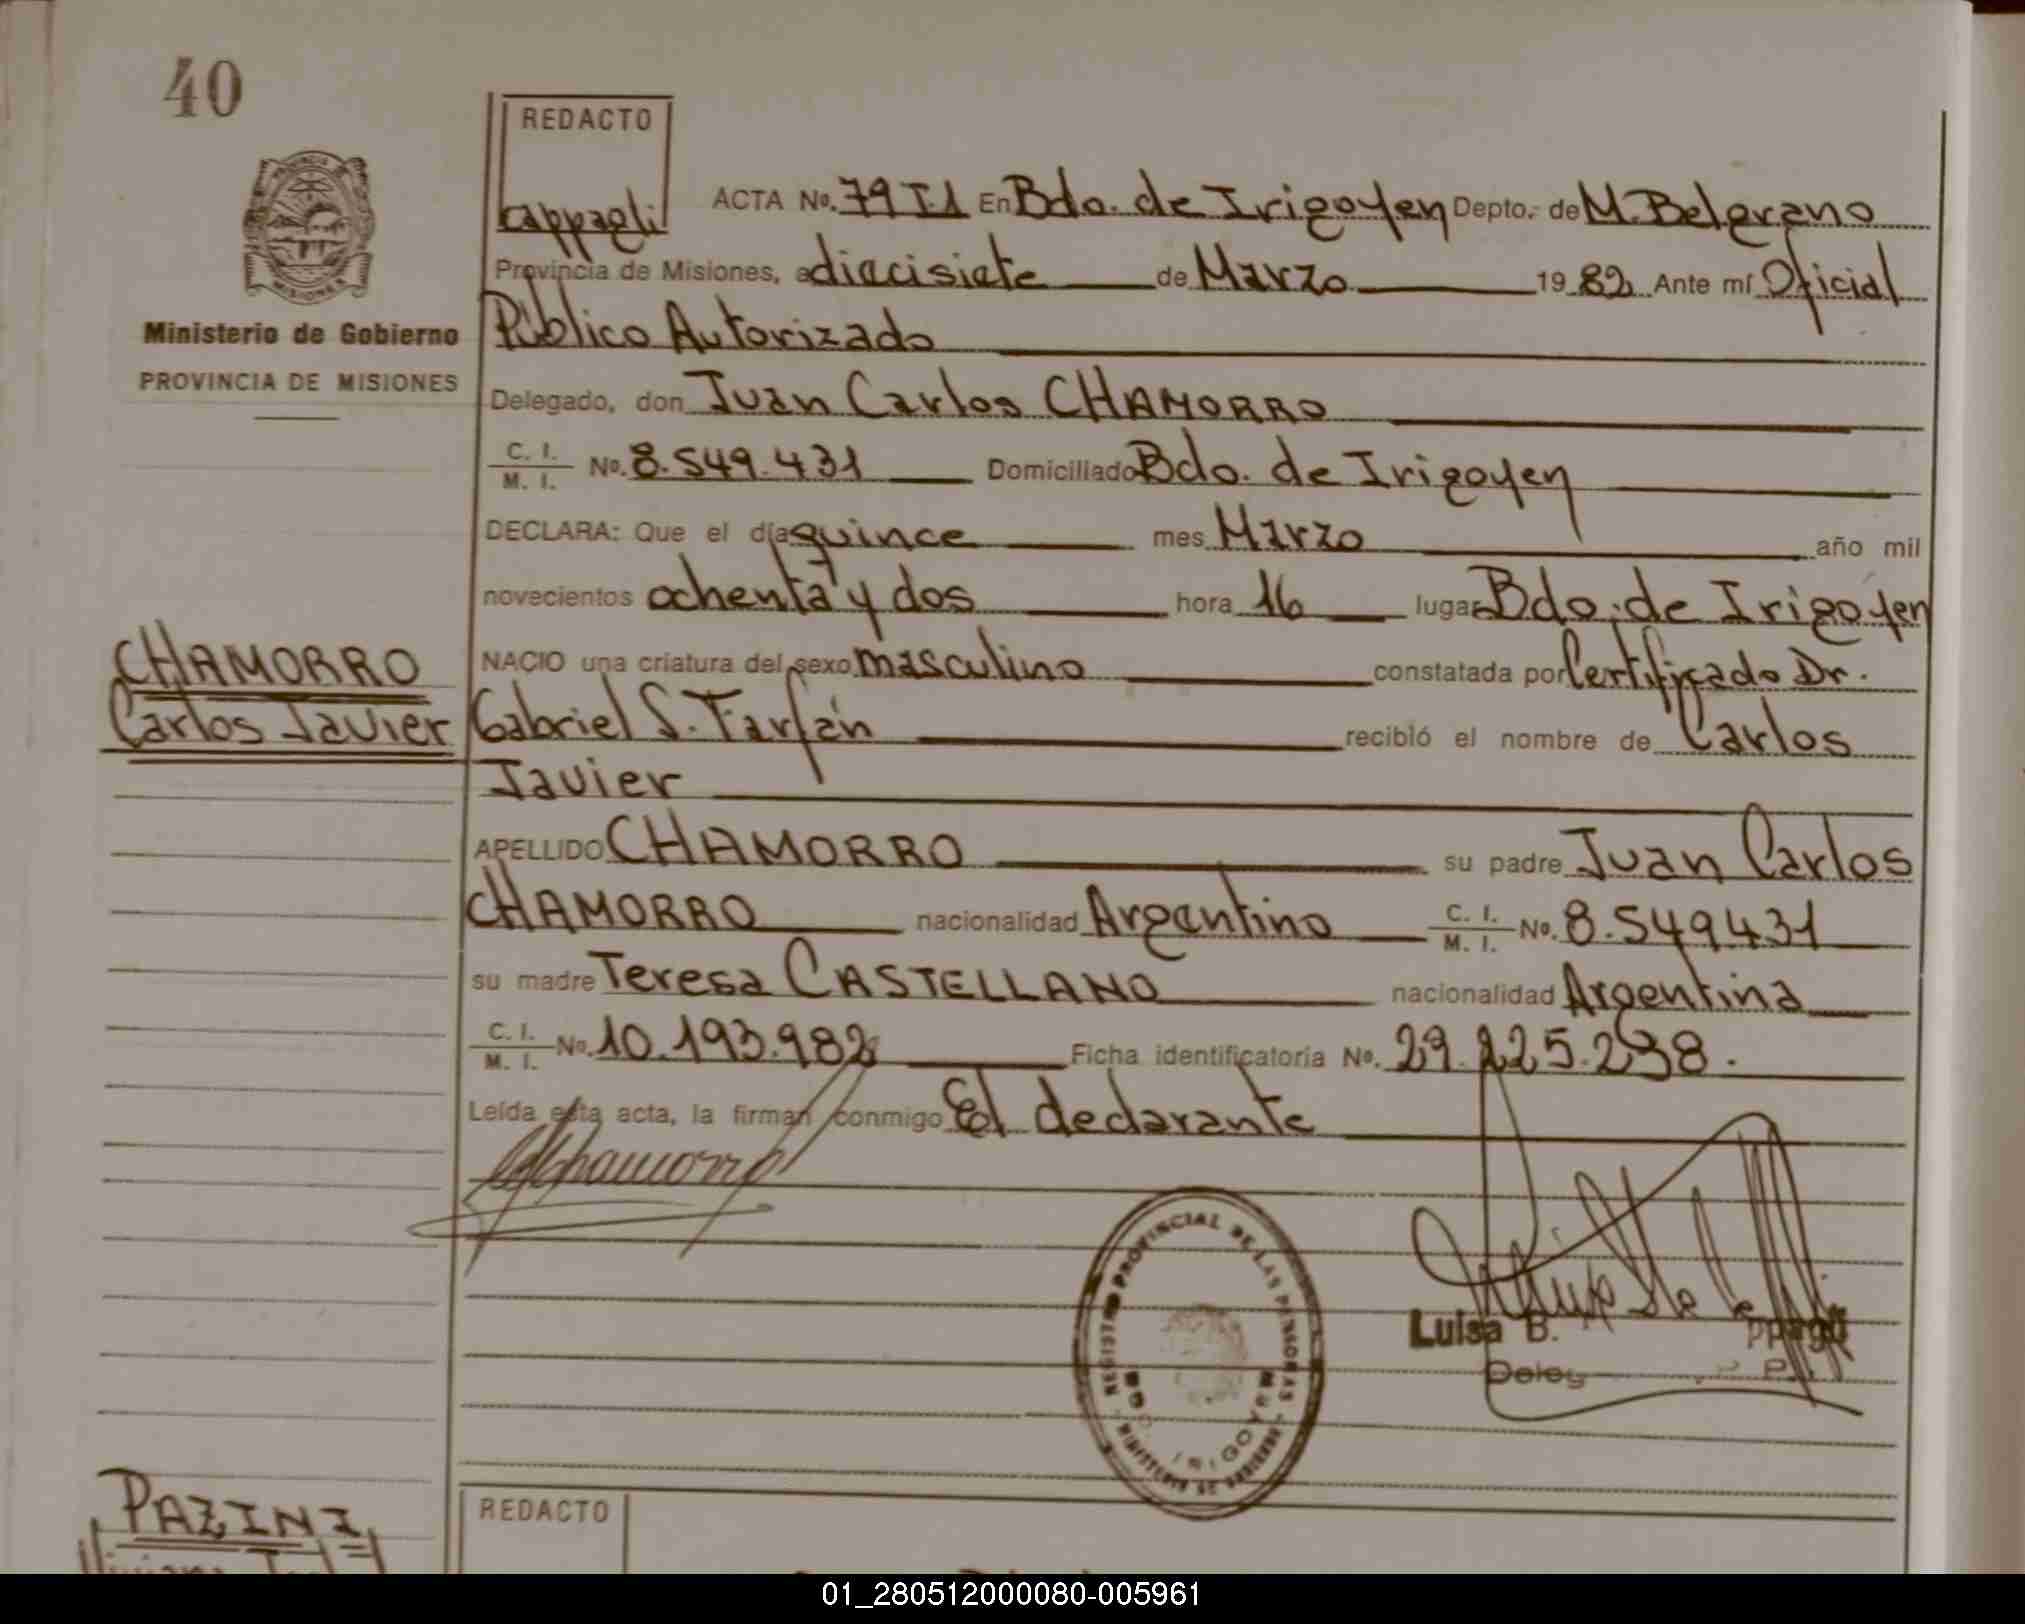 40
REDACTO
cappagli
ACTA No. 79 T.1 En Bdo. de Irigoyen Depto. de M. Belgrano
Provincia de Misiones, a diecisiete de Marzo 1982 Ante mí Oficial
Público Autorizado
Delegado, don Juan Carlos CHAMORRO
C. I.
M. I. No. 8.549.431 Domiciliado Bdo. de Irigoyen
DECLARA: Que el día quince mes Marzo año mil
novecientos ochenta y dos hora 16 lugar Bdo. de Irigoyen
NACIO una criatura del sexo masculino constatada por Certificado Dr.
Gabriel S. Farfán recibió el nombre de Carlos
Javier
APELLIDO CHAMORRO su padre Juan Carlos
CHAMORRO nacionalidad Argentino C. I. M. I. No. 8.549431
su madre Teresa CASTELLANO nacionalidad Argentina
C. I.
M. I. No. 10.193.982 Ficha identificatoria No. 29.225.238.
Leída esta acta, la firman conmigo El declarante
Chamorro
PROVINCIA DE MISIONES
Ministerio de Gobierno
PROVINCIA DE MISIONES
CHAMORRO
Carlos Javier
REGISTRO PROVINCIAL DE LAS PERSONAS
MINISTERIO DE GOBIERNO
BDO. IRIGOYEN
Luisa B.
PAZINI
REDACTO
01_280512000080-005961